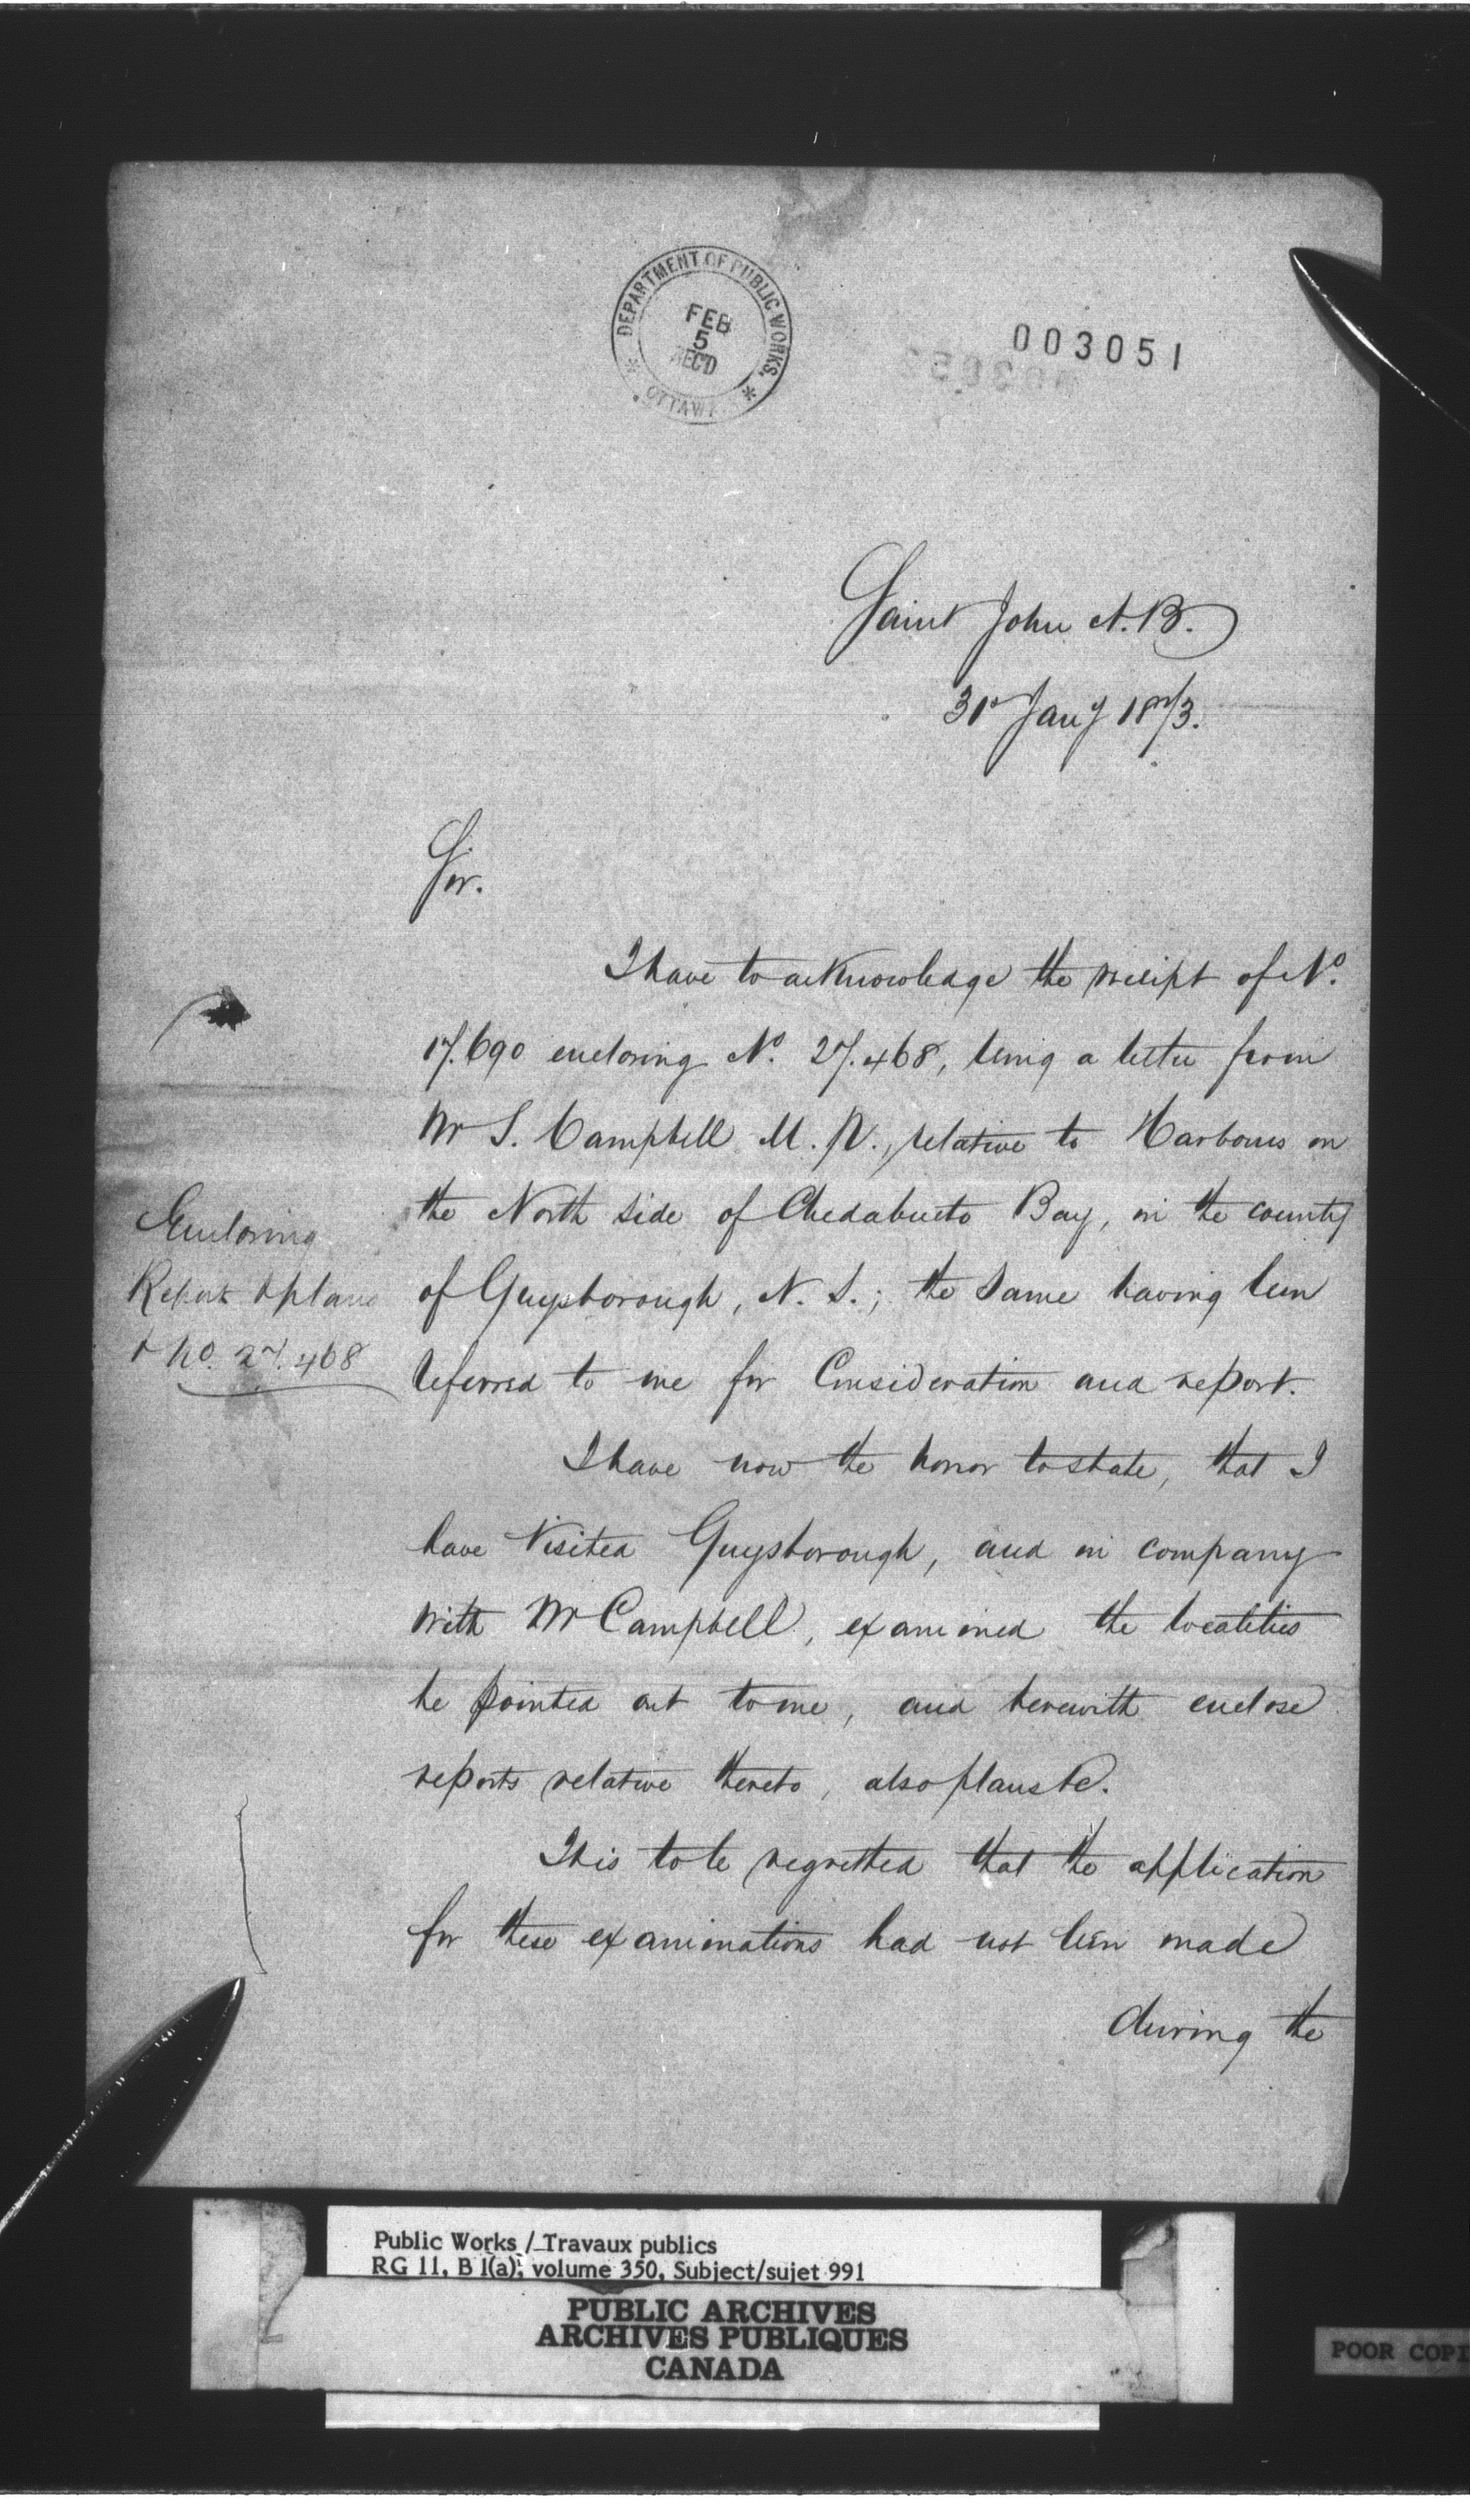 DEPARTMENT OF PUBLIC WORKS.
FEB
5
REC'D
OTTAWA
003051
Saint John N.B.
31st Jany 1873.
Sir.
I have to acknowledge the receipt of No.
17.690 enclosing No. 27.468, being a letter from
Mr S. Campbell M.P., relative to Harbours on
the North side of Chedabucto Bay, in the county
of Guysborough, N.S.; the same having been
referred to me for Consideration and report.
Enclosing
Report & plans
& No. 27.468
I have now the honor to state, that I
have visited Guysborough, and in company
with Mr Campbell, examined the localities
he pointed out to me, and herewith enclose
reports relative thereto, also plans &c.
It is to be regretted that the application
for these examinations had not been made
during the
Public Works / Travaux publics
RG 11, B 1(a), volume 350, Subject/sujet 991
PUBLIC ARCHIVES
ARCHIVES PUBLIQUES
CANADA
POOR COPI